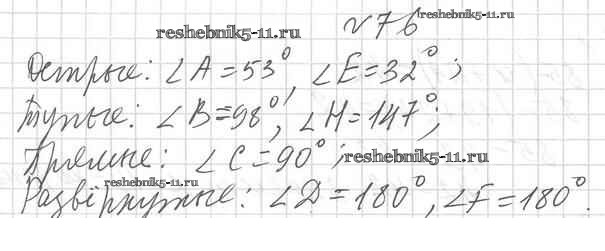 № 76
reshebnik5-11.ru
reshebnik5-11.ru
Острые: ∠A = 53°, ∠E = 32°;
Тупые: ∠B = 98°, ∠H = 147°;
Прямые: ∠C = 90°;
reshebnik5-11.ru
reshebnik5-11.ru
Развёрнутые: ∠D = 180°, ∠F = 180°.